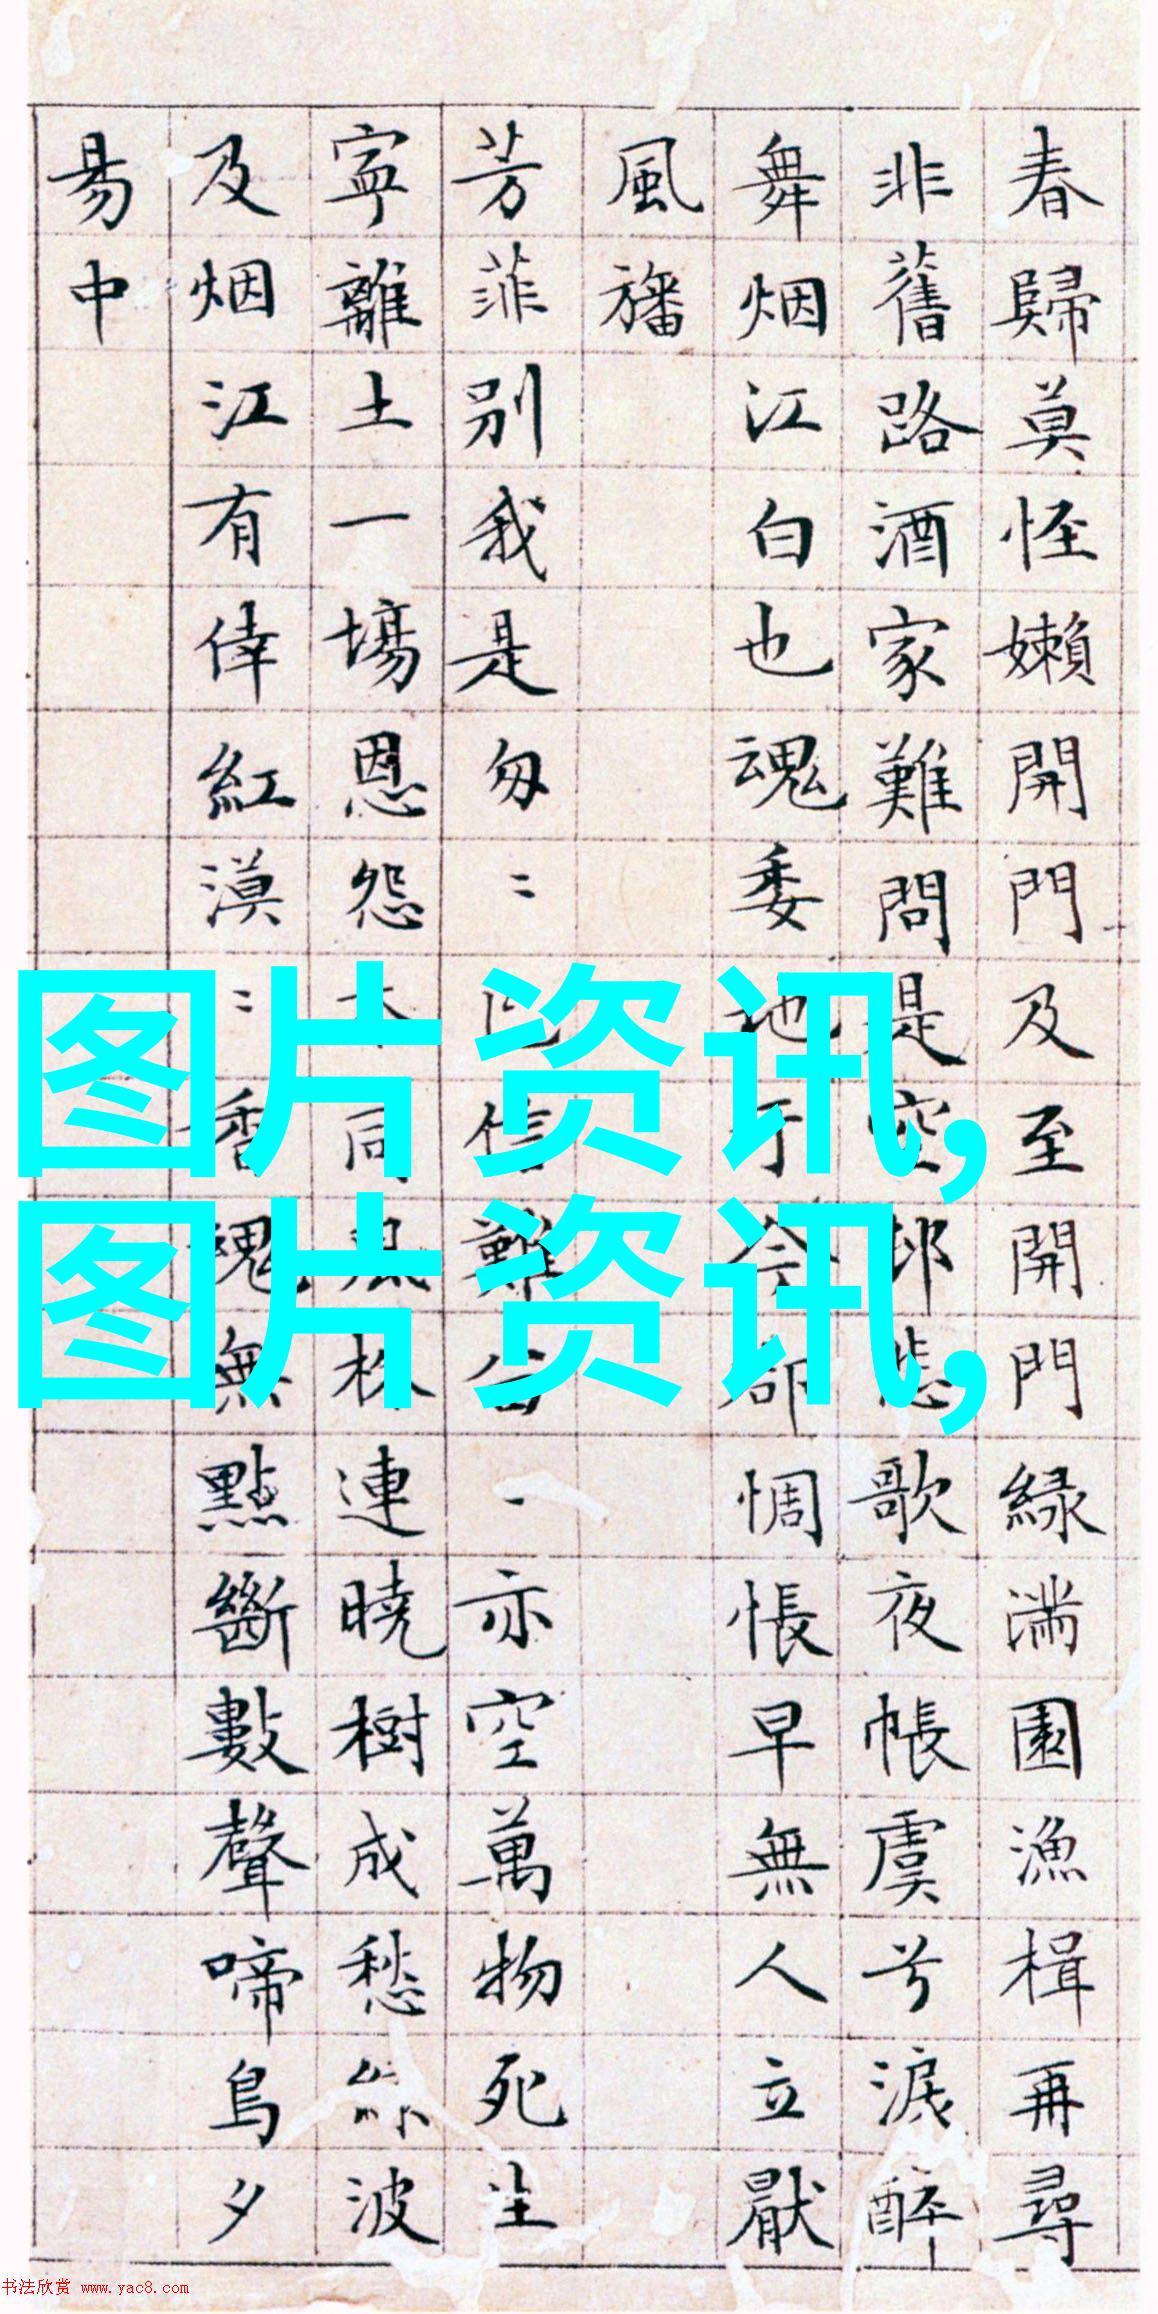 春歸莫怪嬾開門及至開門緑滿園漁楫再尋
非舊路酒家難問是空邨悲歌夜帳虞兮淚醉
舞烟江白也魂委地于今都惆悵早無人立厭
風旛
芳菲別我是匆〻難留一亦空萬物死生
寧離土一塲恩怨本同風株連曉樹成愁綠波
及烟江有倖紅漠〻香魂無點斷數聲啼鳥夕
昜中
图片资讯,
图片资讯,
书法欣赏 www.yac8.com